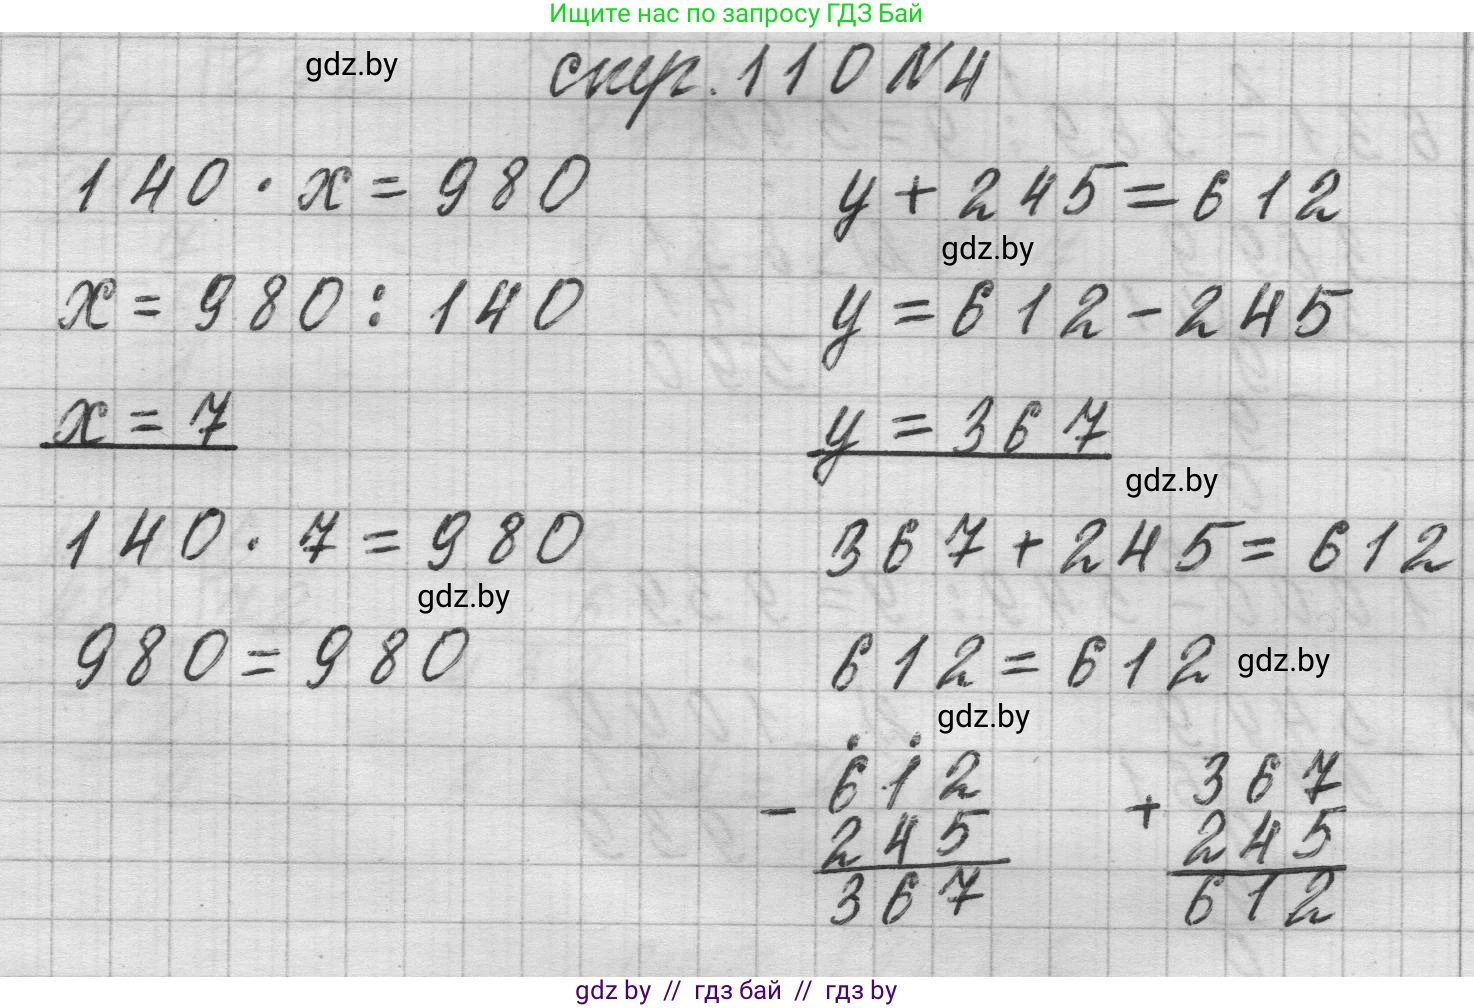 Ищите нас по запросу ГДЗ Бай
gdz.by
стр. 110 №4
140 · x = 980
x = 980 : 140
x = 7
140 · 7 = 980
gdz.by
980 = 980
y + 245 = 612
gdz.by
y = 612 - 245
y = 367
gdz.by
367 + 245 = 612
612 = 612
gdz.by
gdz.by
- 612
245
367
+ 367
245
612
gdz by // гдз бай // гдз by